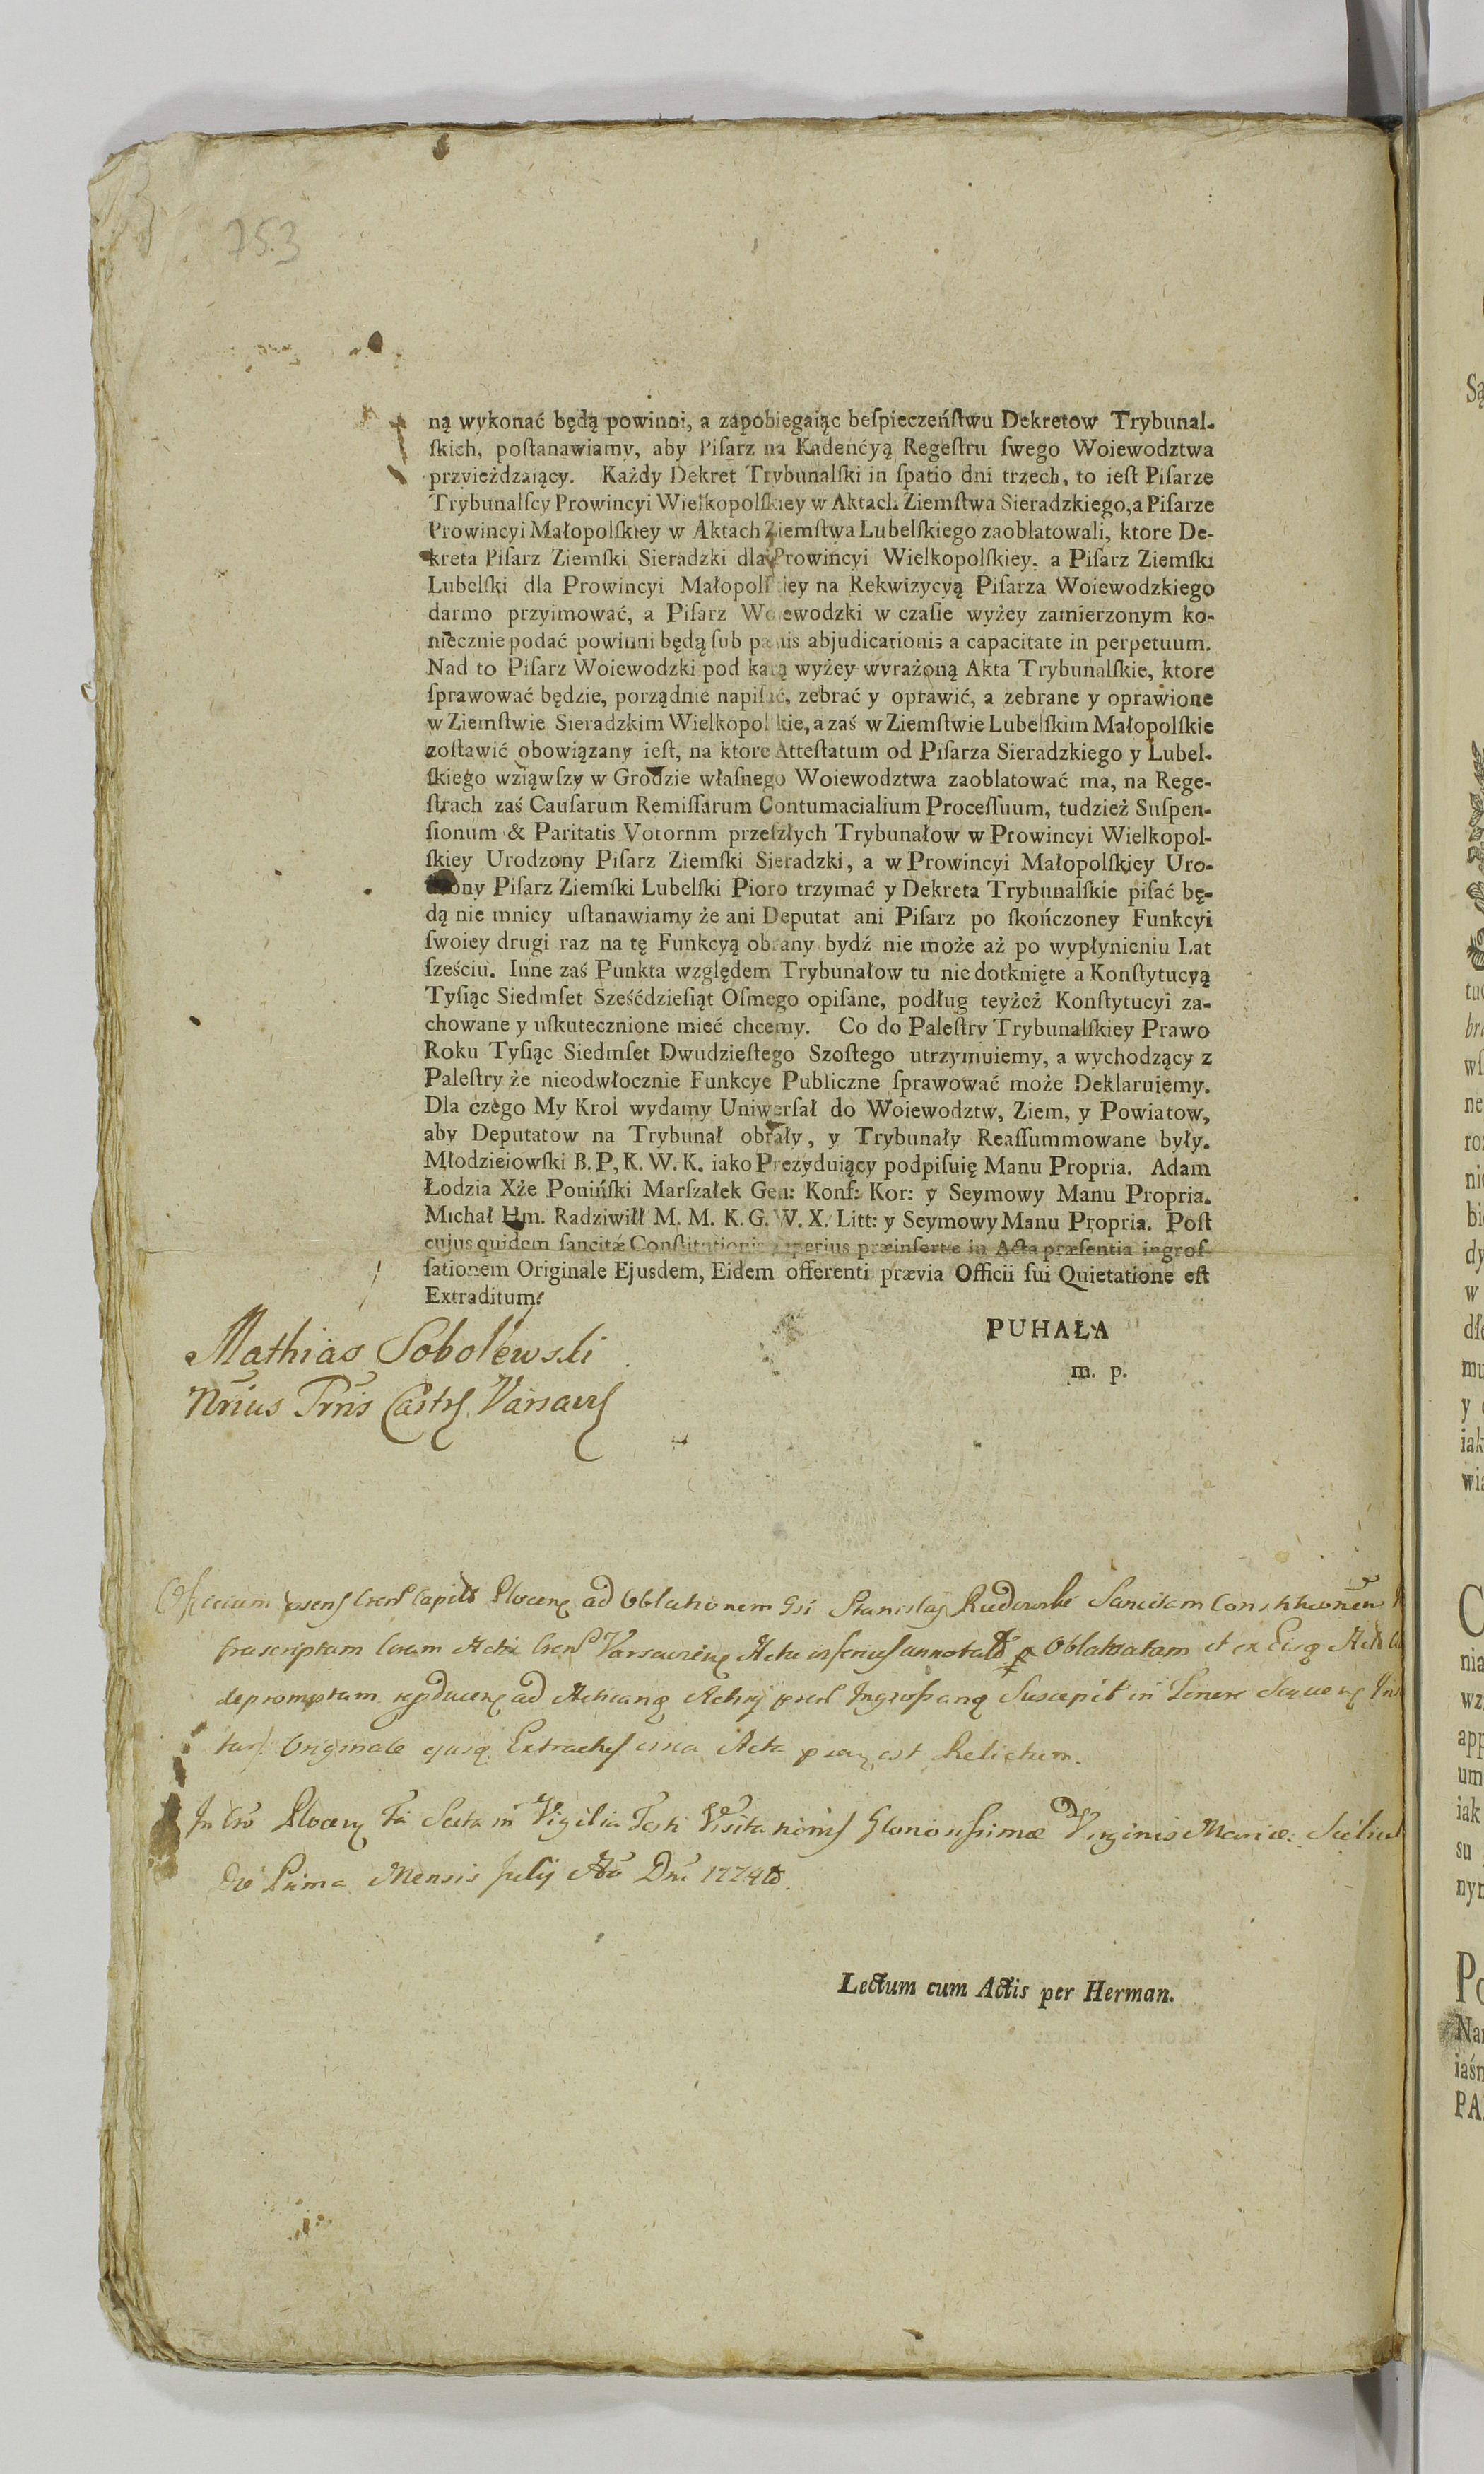 753
ną wykonać będą powinni, a zapobiegaiąc beſpieczeńſtwu Dekretow Trybunal-
ſkich, poſtanawiamy, aby Piſarz na Kadencyą Regeſtru ſwego Woiewodztwa
przyieżdzaiący. Każdy Dekret Trybunalſki in ſpatio dni trzech, to ieſt Piſarze
Trybunalſcy Prowincyi Wielkopolſkiey w Aktach Ziemſtwa Sieradzkiego, a Piſarze
Prowincyi Małopolſkiey w Aktach Ziemſtwa Lubelſkiego zaoblatowali, ktore De-
kreta Piſarz Ziemſki Sieradzki dla Prowincyi Wielkopolſkiey, a Piſarz Ziemſki
Lubelſki dla Prowincyi Małopolſkiey na Rekwizycyą Piſarza Woiewodzkiego
darmo przyimować, a Piſarz Woiewodzki w czaſie wyżey zamierzonym ko-
niecznie podać powinni będą ſub pænis abjudicationis a capacitate in perpetuum.
Nad to Piſarz Woiewodzki pod karą wyżey wyrażoną Akta Trybunalſkie, ktore
ſprawować będzie, porządnie napiſać, zebrać y oprawić, a zebrane y oprawione
w Ziemſtwie Sieradzkim Wielkopolſkie, a zaś w Ziemſtwie Lubelſkim Małopolſkie
zoſtawić obowiązany ieſt, na ktore Atteſtatum od Piſarza Sieradzkiego y Lubel-
ſkiego wziąwſzy w Grodzie właſnego Woiewodztwa zaoblatować ma, na Rege-
ſtrach zaś Cauſarum Remiſſarum Contumacialium Proceſſuum, tudzież Suſpen-
ſionum & Paritatis Votornm przeſzłych Trybunałow w Prowincyi Wielkopol-
ſkiey Urodzony Piſarz Ziemſki Sieradzki, a w Prowincyi Małopolſkiey Uro-
dzony Piſarz Ziemſki Lubelſki Pioro trzymać y Dekreta Trybunalſkie piſać bę-
dą nie mniey uſtanawiamy że ani Deputat ani Piſarz po ſkończoney Funkcyi
ſwoiey drugi raz na tę Funkcyą obrany bydź nie może aż po wypłynieniu Lat
ſześciu. Inne zaś Punkta względem Trybunałow tu nie dotknięte a Konſtytucyą
Tyſiąc Siedmſet Sześćdzieſiąt Oſmego opiſane, podług teyżeż Konſtytucyi za-
chowane y uſkutecznione mieć chcemy. Co do Paleſtry Trybunalſkiey Prawo
Roku Tyſiąc Siedmſet Dwudzieſtego Szoſtego utrzymuiemy, a wychodzący z
Paleſtry że nieodwłocznie Funkcye Publiczne ſprawować może Deklaruiemy.
Dla czego My Krol wydamy Uniwerſał do Woiewodztw, Ziem, y Powiatow,
aby Deputatow na Trybunał obrały, y Trybunały Reaſſummowane były.
Młodzieiowſki B. P, K. W. K. iako Prezyduiący podpiſuię Manu Propria. Adam
Łodzia Xże Poniński Marſzałek Gen: Konf: Kor: y Seymowy Manu Propria.
Michał Hm. Radziwiłł M. M. K. G. W. X. Litt: y Seymowy Manu Propria. Poſt
cujus quidem ſancitæ Conſtitutionis ſuperius præinſertæ in Acta præſentia ingroſ-
ſationem Originale Ejusdem, Eidem offerenti prævia Officii ſui Quietatione eſt
Extraditum.
PUHAŁA
m. p.
Mathias Sobolewski
Nrius Prns Castr Varsav
Officium ad Oblationem Stanislai Rudowski Sancitam
Actis inferius et ex
depromptam ad Suscepit in
Originale Extractus Acta est Relictum.
In Vigilia Festi Visitationis Gloriosissimæ Virginis Mariæ
Die Prima Mensis Julij Dni 1774
Lectum cum Actis per Herman.